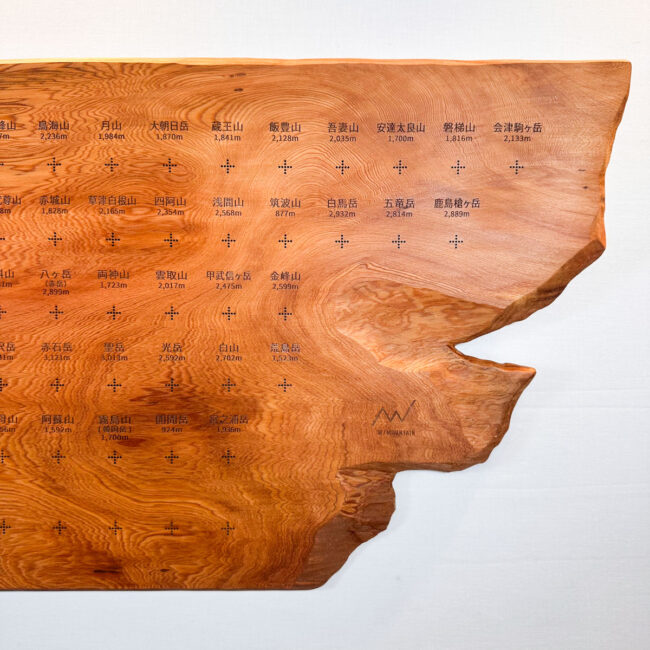 峰山 鳥海山 月山 大朝日岳 蔵王山 飯豊山 吾妻山 安達太良山 磐梯山 会津駒ヶ岳
7m 2,236m 1,984m 1,870m 1,841m 2,128m 2,035m 1,700m 1,816m 2,133m
尊山 赤城山 草津白根山 四阿山 浅間山 筑波山 白馬岳 五竜岳 鹿島槍ヶ岳
8m 1,828m 2,165m 2,354m 2,568m 877m 2,932m 2,814m 2,889m
科山 八ヶ岳 両神山 雲取山 甲武信ヶ岳 金峰山
1m (赤岳) 1,723m 2,017m 2,475m 2,599m
2,899m
沢岳 赤石岳 聖岳 光岳 白山 荒島岳
1m 3,121m 3,013m 2,592m 2,702m 1,523m
月山 阿蘇山 霧島山 開聞岳 宮之浦岳
56m 1,592m (韓国岳) 924m 1,936m
1,700m
MYMOUNTAIN